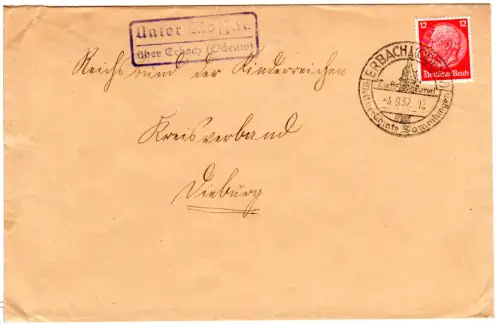 Unter Mossau
über Erbach (Odenw)
12 12
Deutsches Reich
ERBACH
Sammlungen
Reichsbund der Kinderreichen
Kreisverband
Dieburg